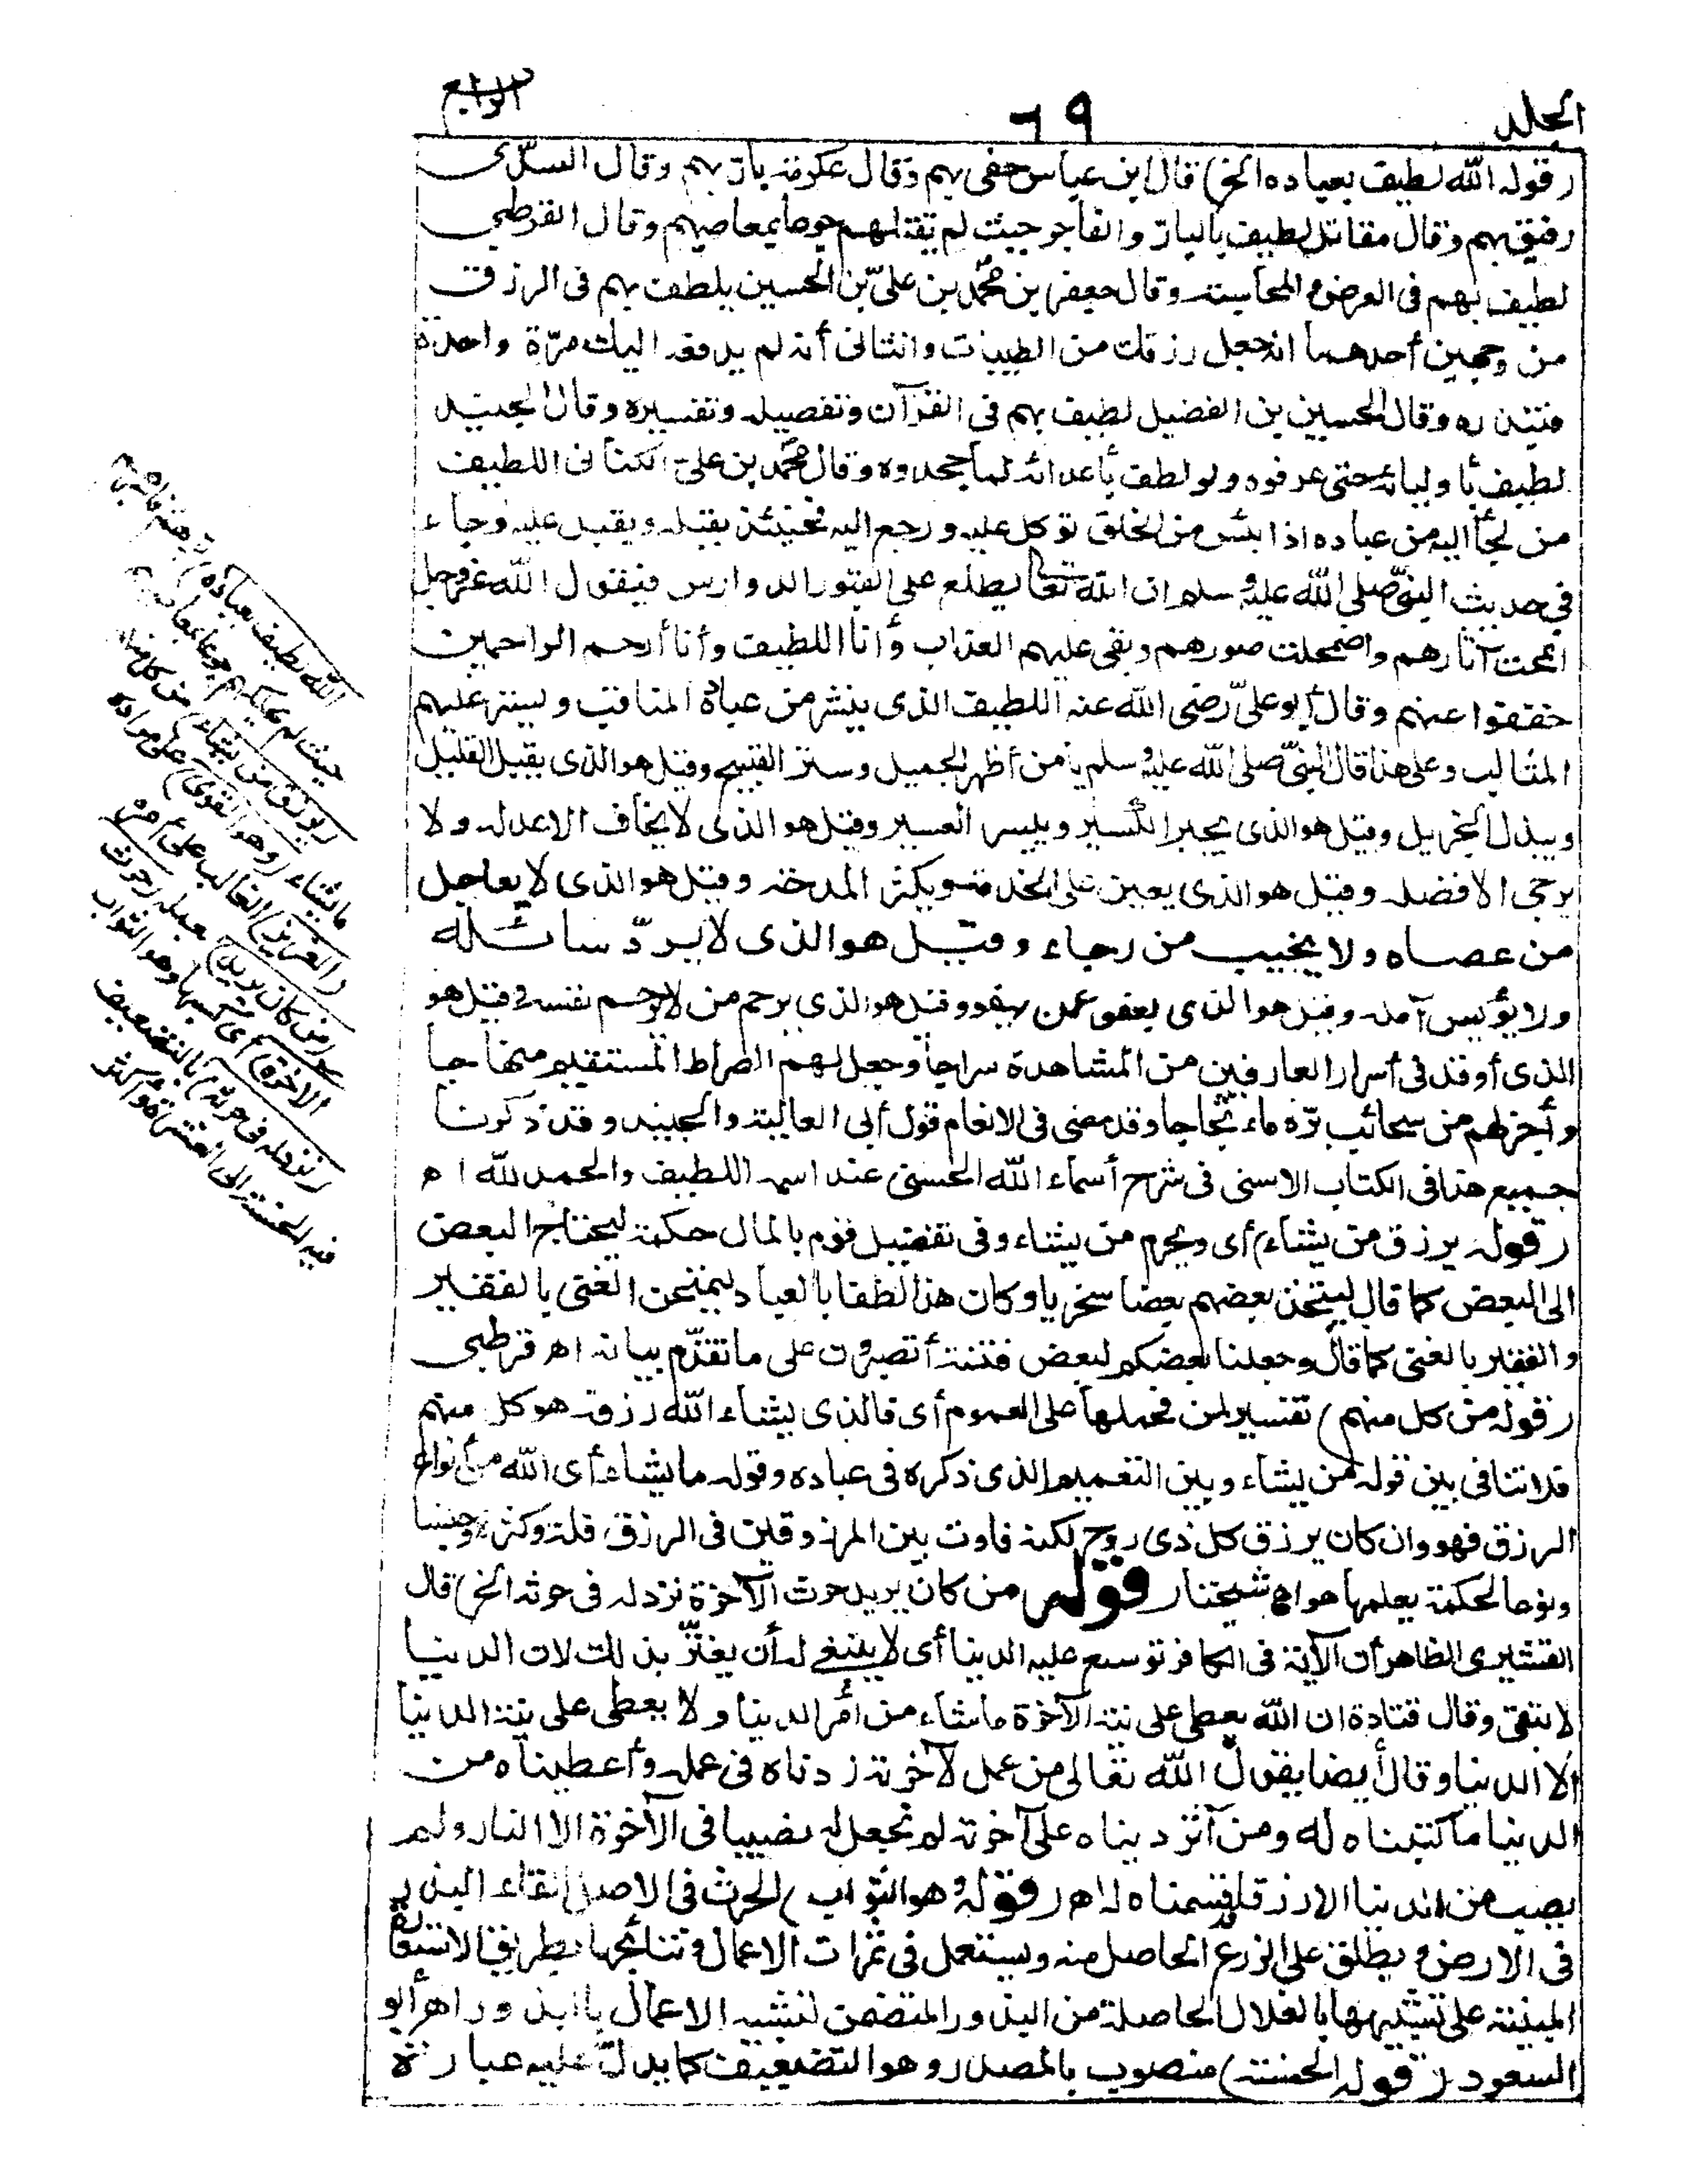 الجلد
٦٩
الرابع
(قوله الله لطيف بعباده الخ) قال ابن عباس حفى بهم وقال عكرمة بارّ بهم وقال السدّى
رفيق بهم وقال مقاتل لطيف بالبارّ والفاجر حيث لم يقتلهم جوعا بمعاصيهم وقال القرظي
لطيف بهم فى العرض والمحاسبة وقال جعفر بن محمّد بن علىّ بن الحسين يلطف بهم فى الرزق
من وجهين أحدهما انه جعل رزقك من الطيبات والثانى أنه لم يدفعه اليك مرّة واحدة
فتبذره وقال الحسين بن الفضيل لطيف بهم فى القرآن وتفصيله وتفسيره وقال الجنيد
لطيف بأوليائه حتى عرفوه ولو لطف بأعدائه لما جحدوه وقال محمّد بن علىّ الكتانى اللطيف
من لجأ اليه من عباده اذا يئس من الخلق توكل عليه ورجع اليه فحينئذ يقبله ويقبل عليه وجاء
في حديث النبيّ صلى الله عليه وسلم ان الله تعالى يطلع على القبور الدوارس فيقول الله عز وجل
امحت آثارهم واضمحلت صورهم وبقى عليهم العذاب وأنا اللطيف وأنا أرحم الراحمين
خففوا عنهم وقال أبو علىّ رضى الله عنه اللطيف الذى ينشر من عباده المناقب ويستر عليهم
المثالب وعلى هذا قال النبيّ صلى الله عليه وسلم يا من أظهر الجميل وستر القبيح وقيل هو الذى يقبل القليل
ويبذل الجزيل وقيل هو الذى يجبر الكسير وييسر العسير وقيل هو الذى لا يخاف الا عدله ولا
يرجى الا فضله وقيل هو الذى يعين على الخدمة ويكثر المدحة وقيل هو الذى لا يعاجل
من عصاه ولا يخيب من رجاء وقيل هو الذى لا يردّ سائله
ولا يؤيس آمله وقيل هو الذى يعفو عمن يهفو وقيل هو الذى يرحم من لا يرحم نفسه وقيل هو
الذى أوقد فى أسرار العارفين من المشاهدة سراجا وجعل لهم الصراط المستقيم منهاجا
وأجزل لهم من سحائب برّه ماء ثجاجا وقد مضى فى الانعام قول أبى العالية والجنيد وقد ذكرنا
جميع هذا فى الكتاب الاسنى فى شرح أسماء الله الحسنى عند اسمه اللطيف والحمد لله ا ه
(قوله يرزق من يشاء) أى ويحرم من يشاء وفى تفضيل قوم بالمال حكمة ليحتاج البعض
الى البعض كما قال ليتخذ بعضهم بعضا سخريا وكان هذا لطفا بالعباد ليمتحن الغنى بالفقير
والفقير بالغنى كما قال وجعلنا بعضكم لبعض فتنة أتصبرون على ما تقدّم بيانه اه قرطبى
(قوله من كل منهم) تفسير لمن فحملها على العموم أى فالذى يشاء الله رزقه هو كل منهم
فلا تنافى بين قوله من يشاء وبين التعميم الذى ذكره فى عباده وقوله ما يشاء أى الله من أنواع
الرزق فهو وان كان يرزق كل ذى روح لكنه فاوت بين المرزوقين فى الرزق قلة وكثرة وجنسا
ونوعا لحكمة يعلمها هو اه شيخنا (قوله من كان يريد حرث الآخرة نزد له فى حرثه الخ) قال
القشيرى الظاهر أن الآية فى الكافر توسيع عليه الدنيا أى لا ينبغى له أن يغترّ بذلك لان الدنيا
لا تبقى وقال قتادة ان الله يعطى على نية الآخرة ما شاء من أمر الدنيا ولا يعطى على نية الدنيا
الا الدنيا وقال أيضا يقول الله تعالى من عمل لآخرته زدناه فى عمله وأعطيناه من
الدنيا ما كتبناه له ومن آثر دنياه على آخرته لم نجعل له نصيبا فى الآخرة الا النار ولم
يصب من الدنيا الا رزقا قسمناه له اه (قوله وهو الثواب) الحرث فى الاصل القاء البذر
فى الارض ويطلق على الزرع الحاصل منه ويستعمل فى ثمرات الاعمال ونتائجها بطريق الاستعارة
المبنية على تشبيهها بالغلال الحاصلة من البذور المتضمن لتشبيه الاعمال بالبذور اه أبو
السعود (قوله الحسنة) منصوب بالمصدر وهو التضعيف كما يدلّ عليه عبارة
الله لطيف بعباده) برهم وفاجرهم
حيث لم يهلكهم جوعا بمعاصيهم
(يرزق من يشاء) من كل منهم
ما يشاء (وهو القوى) على مراده
(العزيز) الغالب على أمره
(من كان يريد) بعمله (حرث
الآخرة) أى كسبها وهو الثواب
(نزد له فى حرثه) بالتضعيف
فيه الحسنة الى العشرة وأكثر